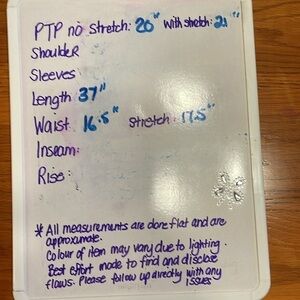 PTP no stretch: 20" with stretch: 21"
Shoulder
Sleeves
Length 37"
Waist 16.5" Stretch: 17.5"
Inseam:
Rise:
* All measurements are done flat and are
approximate.
Colour of item may vary due to lighting.
Best effort made to find and disclose
flaws. Please follow up directly with any
issues